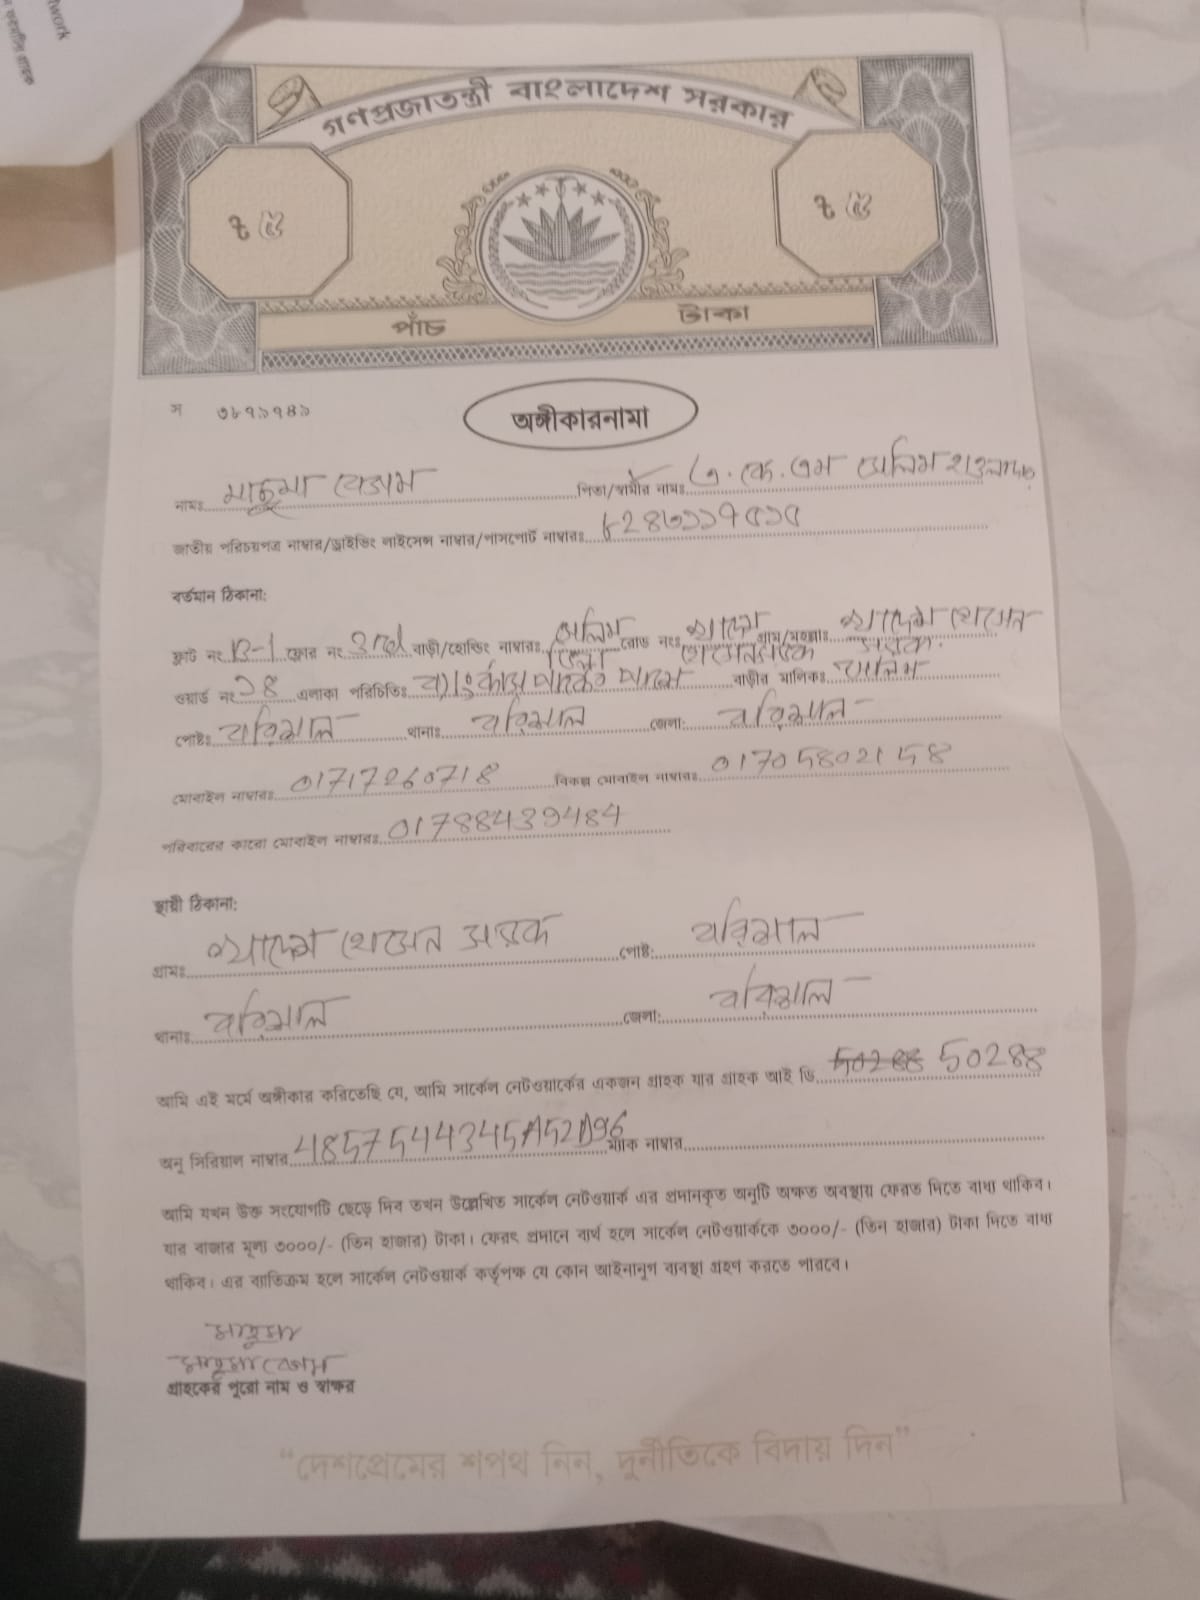 twork
গণপ্রজাতন্ত্রী বাংলাদেশ সরকার
৳ ৫ ৳ ৫
পাঁচ টাকা
স ৩৮৭১৭৪১
অঙ্গীকারনামা
নামঃ মাছুমা বেগম পিতা/স্বামীর নামঃ এ. কে. এম সেলিম হাওলাদার
জাতীয় পরিচয়পত্র নাম্বার/ড্রাইভিং লাইসেন্স নাম্বার/পাসপোর্ট নাম্বারঃ ৮২৪৬১১৭৫১৫
বর্তমান ঠিকানা:
ফ্লাট নং B-1 ফ্লোর নং 3rd বাড়ী/হোল্ডিং নাম্বারঃ সেলিম ভিলা রোড নংঃ খাদেম হোসেন সড়ক গ্রাম/মহল্লাঃ খাদেম হোসেন সড়ক.
ওয়ার্ড নং ১৪ এলাকা পরিচিতিঃ বাড়ীর মালিকঃ সেলিম
পোষ্টঃ বরিশাল থানাঃ বরিশাল জেলা: বরিশাল
মোবাইল নাম্বারঃ 01717260718 বিকল্প মোবাইল নাম্বারঃ 01705802158
পরিবারের কারো মোবাইল নাম্বারঃ 01788439484
স্থায়ী ঠিকানা:
গ্রামঃ খাদেম হোসেন সড়ক পোষ্ট: বরিশাল
থানাঃ বরিশাল জেলা: বরিশাল
আমি এই মর্মে অঙ্গীকার করিতেছি যে, আমি সার্কেল নেটওয়ার্কের একজন গ্রাহক যার গ্রাহক আই ডি 50288 50288
অনু সিরিয়াল নাম্বার 4857544345A52D96 ম্যাক নাম্বার
আমি যখন উক্ত সংযোগটি ছেড়ে দিব তখন উল্লেখিত সার্কেল নেটওয়ার্ক এর প্রদানকৃত অনুটি অক্ষত অবস্থায় ফেরত দিতে বাধ্য থাকিব।
যার বাজার মূল্য ৩০০০/- (তিন হাজার) টাকা। ফেরৎ প্রদানে ব্যর্থ হলে সার্কেল নেটওয়ার্ককে ৩০০০/- (তিন হাজার) টাকা দিতে বাধ্য
থাকিব। এর ব্যতিক্রম হলে সার্কেল নেটওয়ার্ক কর্তৃপক্ষ যে কোন আইনানুগ ব্যবস্থা গ্রহণ করতে পারবে।
মাছুমা
মাছুমা বেগম
গ্রাহকের পুরো নাম ও স্বাক্ষর
“দেশপ্রেমের শপথ নিন, দুর্নীতিকে বিদায় দিন”